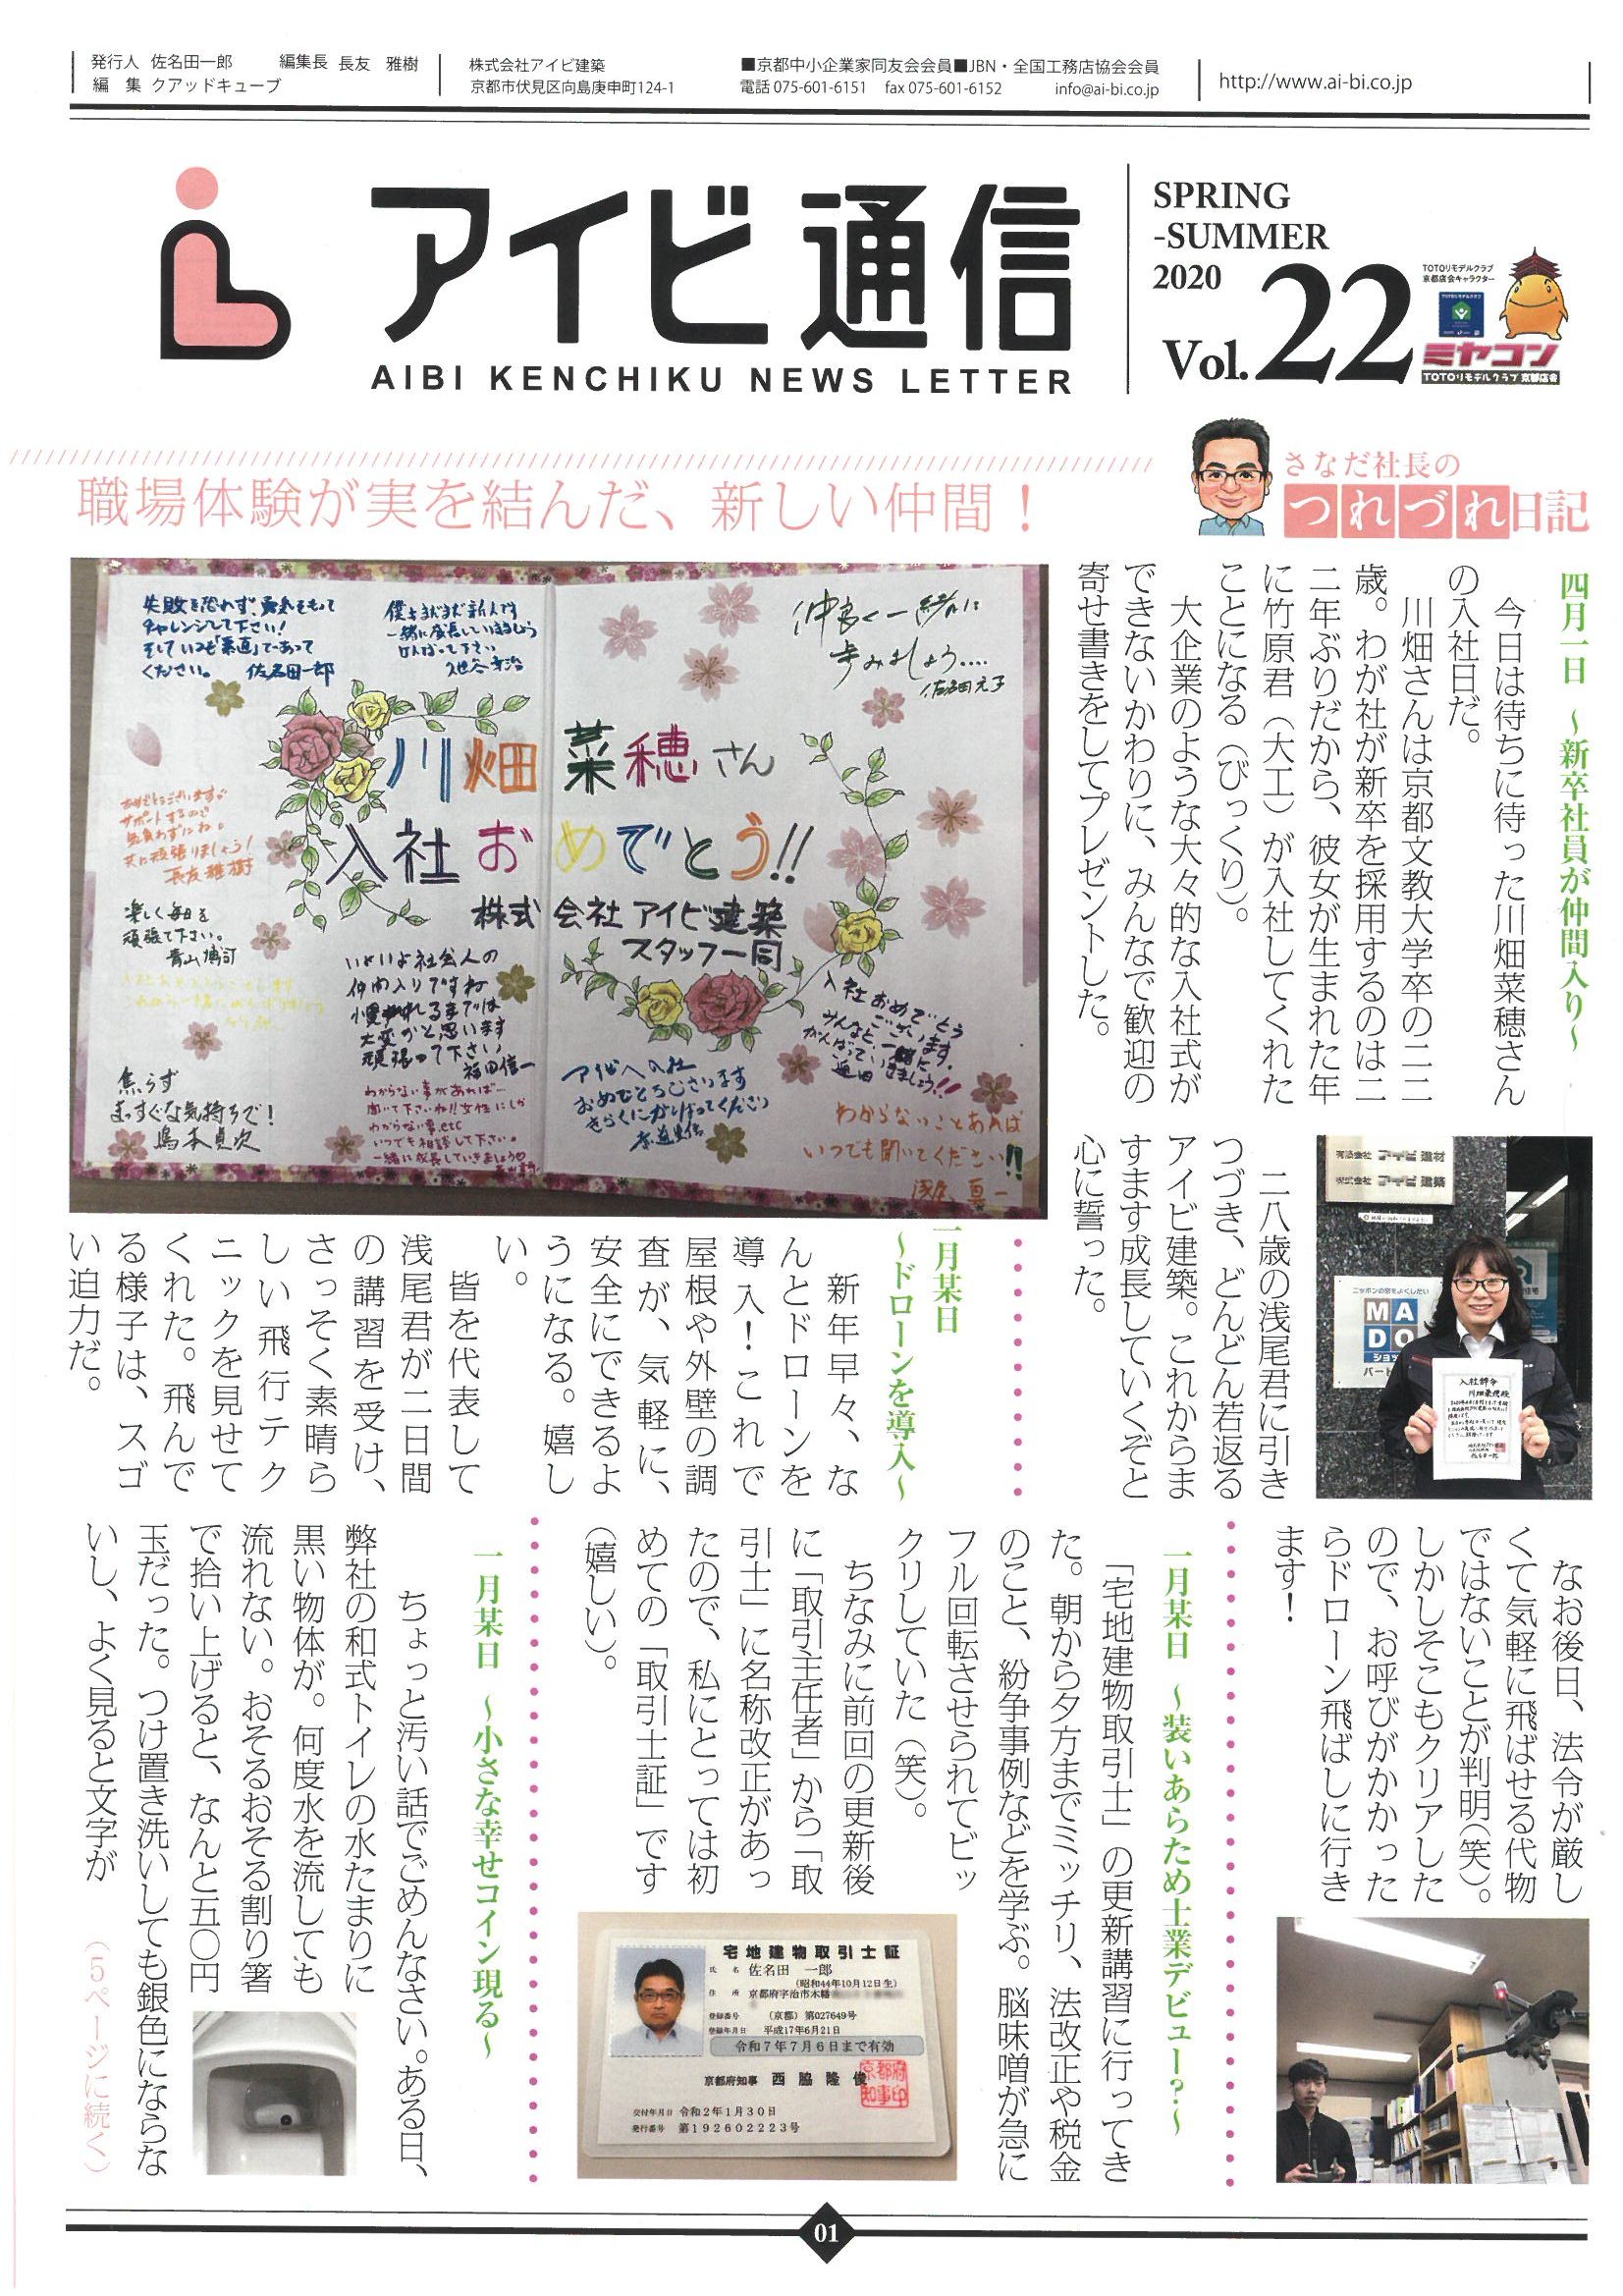 発行人 佐名田一郎 編集長 長友 雅樹
編 集 クアッドキューブ
株式会社アイビ建築
京都市伏見区向島庚申町124-1
■京都中小企業家同友会会員■JBN・全国工務店協会会員
電話 075-601-6151 fax 075-601-6152 info@ai-bi.co.jp
http://www.ai-bi.co.jp
アイビ通信
AIBI KENCHIKU NEWS LETTER
SPRING
-SUMMER
2020
Vol.22
TOTOリモデルクラブ
京都店会キャラクター
ミヤコン
TOTOリモデルクラブ京都店会
さなだ社長の
つれづれ日記
職場体験が実を結んだ、新しい仲間！
四月一日 ～新卒社員が仲間入り～
今日は待ちに待った川畑菜穂さん
の入社日だ。
川畑さんは京都文教大学卒の二二
歳。わが社が新卒を採用するのは二
二年ぶりだから、彼女が生まれた年
に竹原君（大工）が入社してくれた
ことになる（びっくり）。
大企業のような大々的な入社式が
できないかわりに、みんなで歓迎の
寄せ書きをしてプレゼントした。
失敗を恐れず、勇気をもって
チャレンジして下さい！
そしていつも「素直」であって
ください。 佐名田一郎
僕もまだまだ新人です
一緒に成長していきましょう
がんばって下さい
仲良く一緒に
歩みましょう....
佐名田元子
川畑 菜穂さん
入社おめでとう!!
株式会社アイビ建築
スタッフ一同
おめでとうございます。
サポートするので
気負わずにね。
共に頑張りましょう！
長友雅樹
楽しく毎日を
頑張て下さい。
青山博司
焦らず
まっすぐな気持ちで！
いよいよ社会人の
仲間入りですね
慣れるまでは
大変かと思います
頑張って下さい
福田信一
わからない事があれば
聞いて下さいね!!女性にしか
わからない事.etc
いつでも相談して下さい。
一緒に成長していきましょう
アイビへの入社
おめでとうございます
入社おめでとう
ございます。
みんなと、一緒に
がんばっていきましょう!!
わからないことあれば
いつでも聞いてください!!
二八歳の浅尾君に引き
つづき、どんどん若返る
アイビ建築。これからま
すます成長していくぞと
心に誓った。
有限会社 アイビ建材
株式会社 アイビ建築
ニッポンの窓をよくしたい
MA
DO
ショップ
入社辞令
川畑菜穂殿
一月某日
～ドローンを導入～
新年早々、な
んとドローンを
導入！これで
屋根や外壁の調
査が、気軽に、
安全にできるよ
うになる。嬉し
い。
皆を代表して
浅尾君が二日間
の講習を受け、
さっそく素晴ら
しい飛行テク
ニックを見せて
くれた。飛んで
る様子は、スゴ
い迫力だ。
なお後日、法令が厳し
くて気軽に飛ばせる代物
ではないことが判明（笑）。
しかしそこもクリアした
ので、お呼びがかかった
らドローン飛ばしに行き
ます！
一月某日 ～装いあらため士業デビュー？～
「宅地建物取引士」の更新講習に行ってき
た。朝から夕方までミッチリ、法改正や税金
のこと、紛争事例などを学ぶ。脳味噌が急に
フル回転させられてビッ
クリしていた（笑）。
ちなみに前回の更新後
に「取引主任者」から「取
引士」に名称改正があっ
たので、私にとっては初
めての「取引士証」です
（嬉しい）。
宅地建物取引士証
氏名 佐名田 一郎
（昭和44年10月12日生）
住所 京都府宇治市木幡
登録番号 （京都）第027649号
登録年月日 平成17年6月21日
令和7年7月6日まで有効
京都府知事 西脇隆俊
京都府知事印
交付年月日 令和2年1月30日
発行番号 第192602223号
一月某日 ～小さな幸せコイン現る～
ちょっと汚い話でごめんなさい。ある日、
弊社の和式トイレの水たまりに
黒い物体が。何度水を流しても
流れない。おそるおそる割り箸
で拾い上げると、なんと五〇円
玉だった。つけ置き洗いしても銀色にならな
いし、よく見ると文字が
（5ページに続く）
01